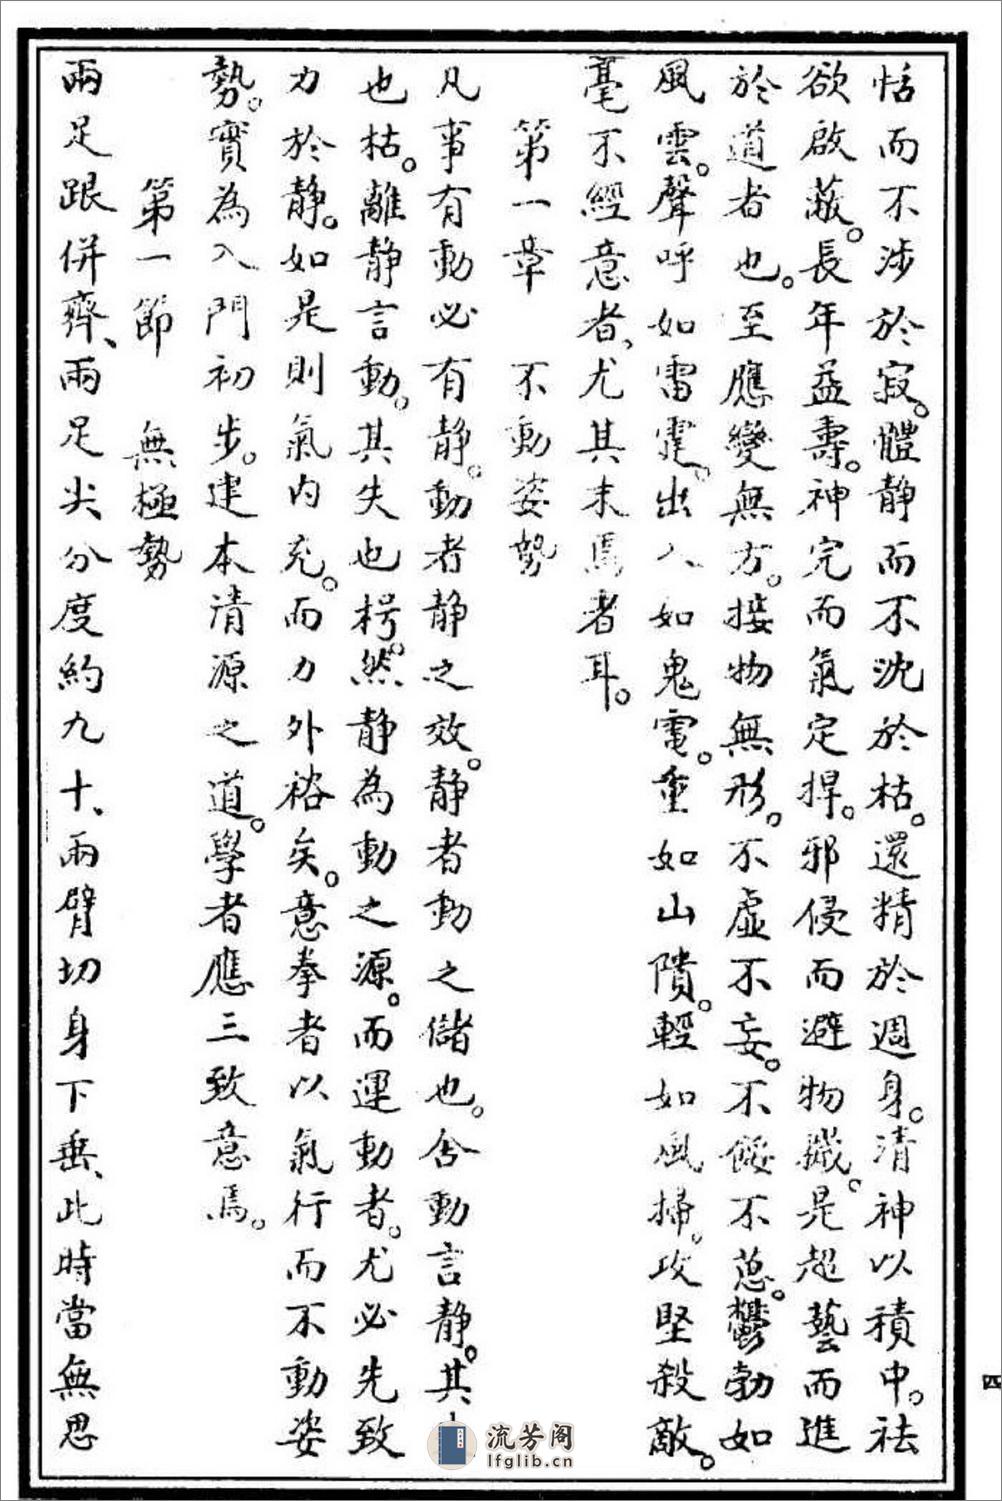 恬而不涉於寂。體静而不沈於枯。還精於週身。清神以積中。祛
欲啟蔽。長年益壽。神完而氣定捍。邪侵而避物濈。是超藝而進
於道者也。至應變無方。接物無形。不虛不妄。不餒不葸。鬱勃如
風雲。聲呼如雷霆。出入如鬼電。重如山隤。輕如風掃。攻堅殺敵。
毫不經意者、尤其末焉者耳。
第一章　不動姿勢
凡事有動必有静。動者静之效。静者動之儲也。舍動言静。其
也枯。離静言動。其失也枵。然静為動之源。而運動者。尤必先致
力於静。如是則氣内充。而力外裕矣。意拳者以氣行而不動姿
勢。實為入門初步。建本清源之道。學者應三致意焉。
第一節　無極勢
兩足跟併齊、兩足尖分度約九十、兩臂切身下垂、此時當無思
四
流芳阁
lfglib.cn